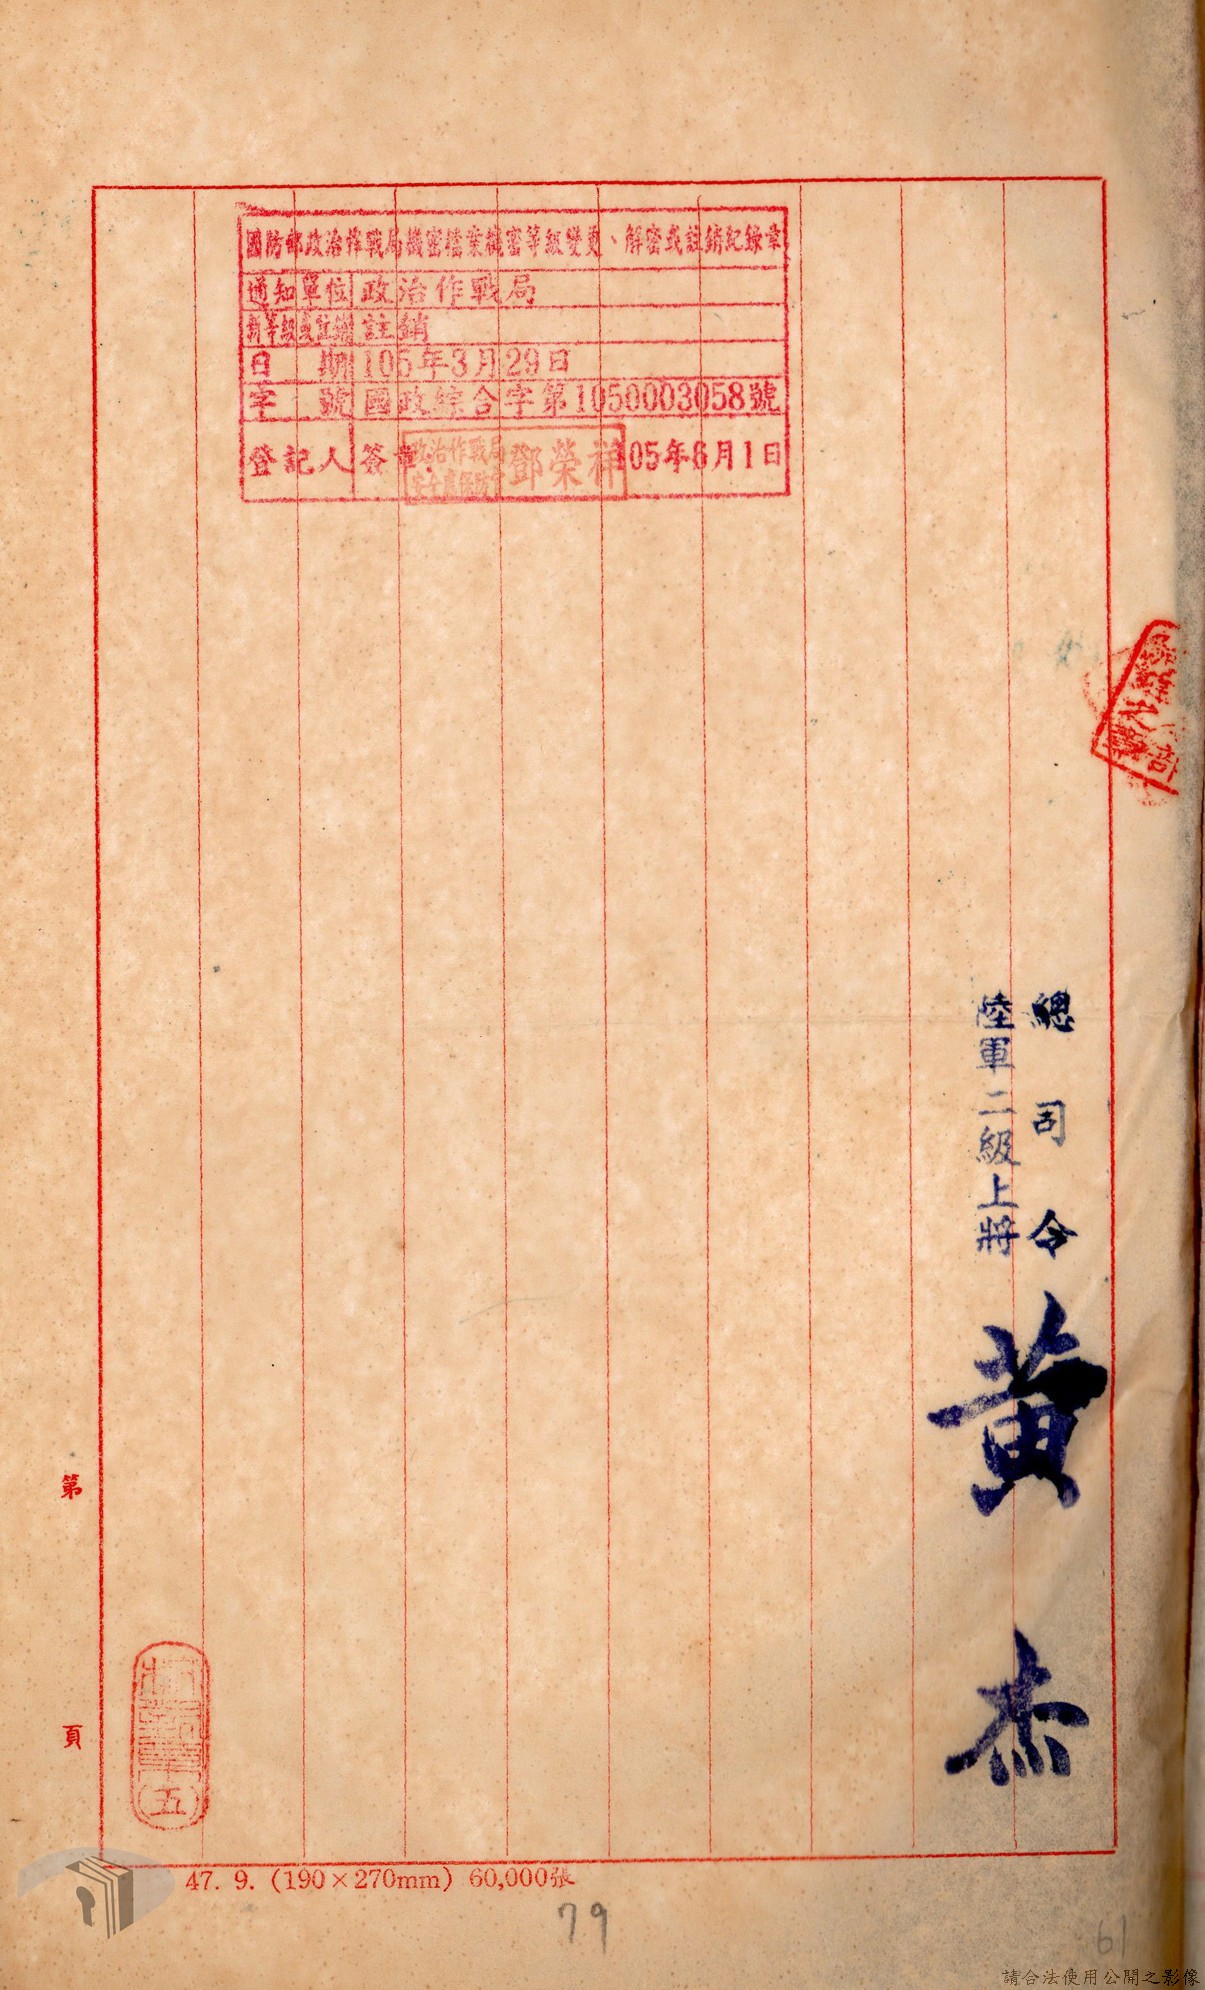 國防部政治作戰局機密檔案機密等級變更、解密或註銷紀錄章
通知單位 政治作戰局
新等級或註銷 註銷
日期 105年3月29日
字號 國政綜合字第1050003058號
登記人 簽章
政治作戰局
鄧榮祥
105年6月1日
總司令
陸軍二級上將
黃杰
第
頁
(五)
47. 9. (190×270mm) 60,000張
79
61
請合法使用公開之影像